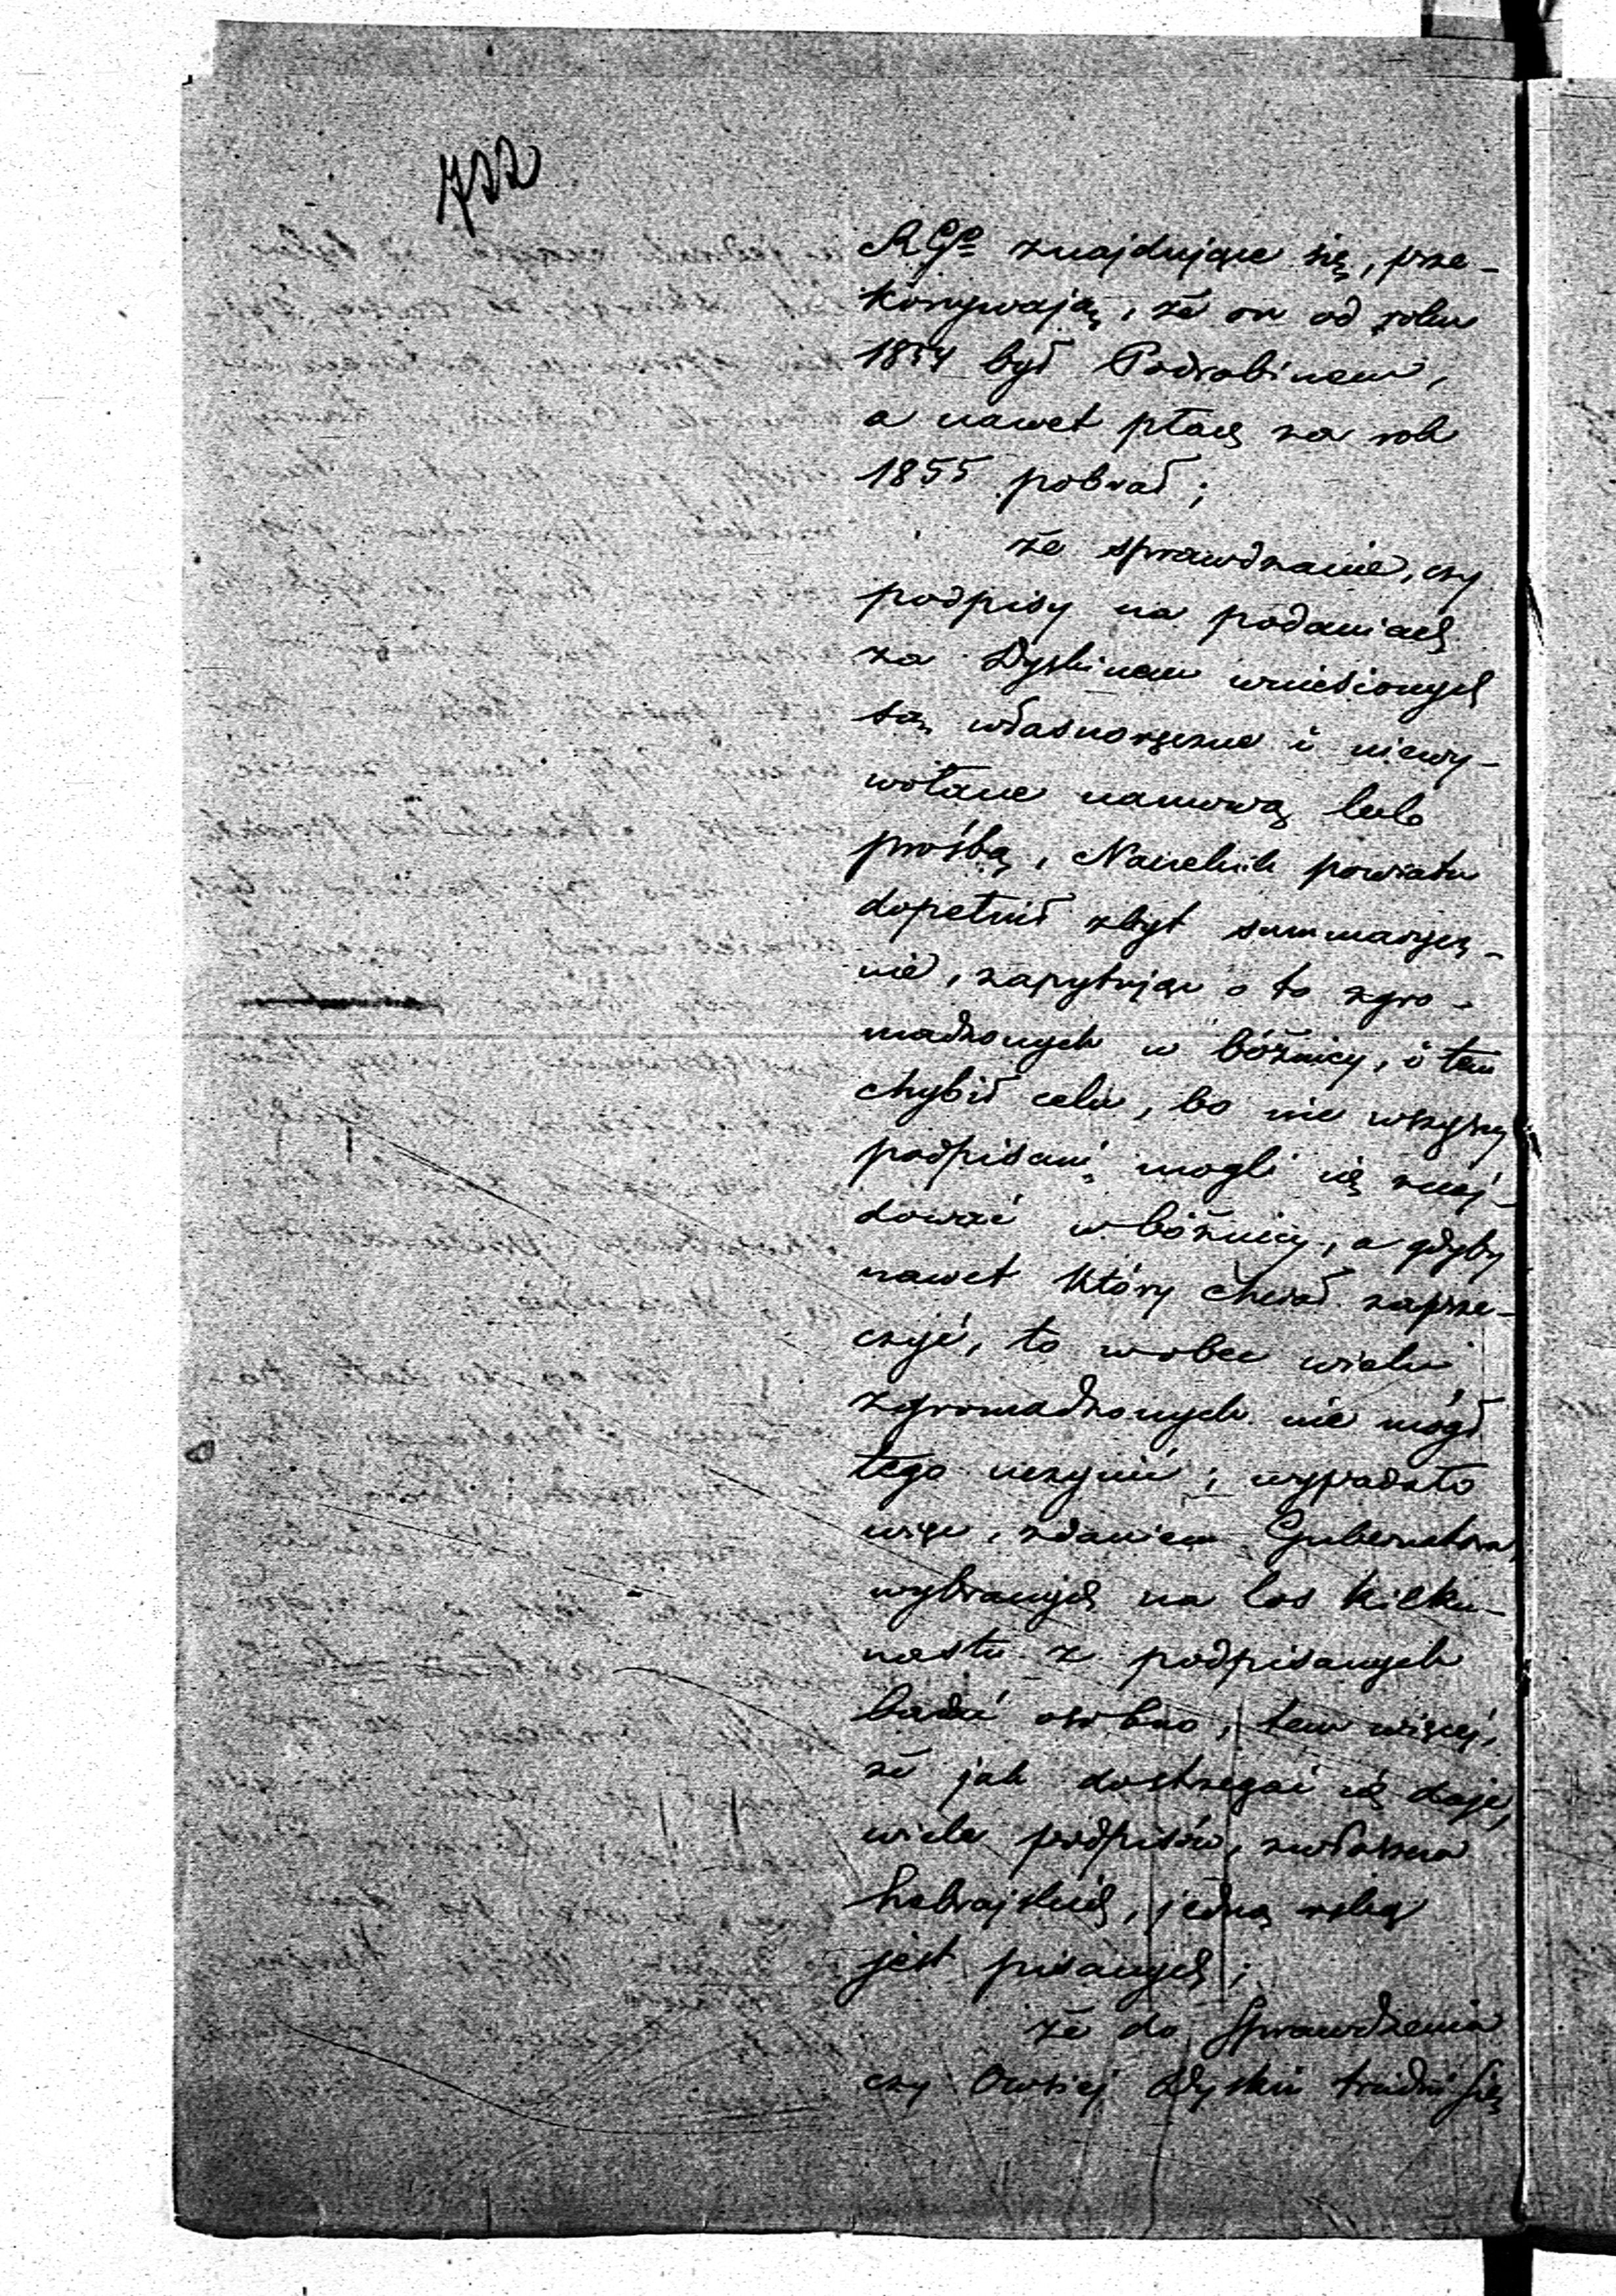 722
RGo znajdujące się, prze-
konywają, że on od roku
1854 był Podrabinem,
a nawet płacę za rok
1855 pobrał;
że sprawdzanie, czy
podpisy na podaniach
za Dyskinem wniesionych
są własnoręczne i niewy-
wołane namową lub
prośbą, Naczelnik powiatu
dopełnił zbyt summarycz-
nie, zapytując o to zgro-
madzonych w bóżnicy, i tem
chybił celu, bo nie wszyscy
podpisani mogli się znaj-
dować w bóżnicy, a gdyby
nawet który chciał zaprze-
czyć, to wobec wielu
zgromadzonych nie mógł
tego uczynić; wypadało
więc, zdaniem Gubernatora,
wybranych na los kilku-
nastu z podpisanych
badać osobno, tem więcej,
że jak dostrzegać się daje,
wiele podpisów, zwłaszcza
hebrajskich, jedną ręką
jest pisanych;
że do sprawdzenia
czy Owsiej Dyskin trudni się